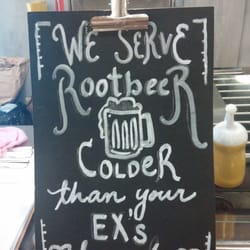 We Serve
Rootbeer
Colder
than your
EX's